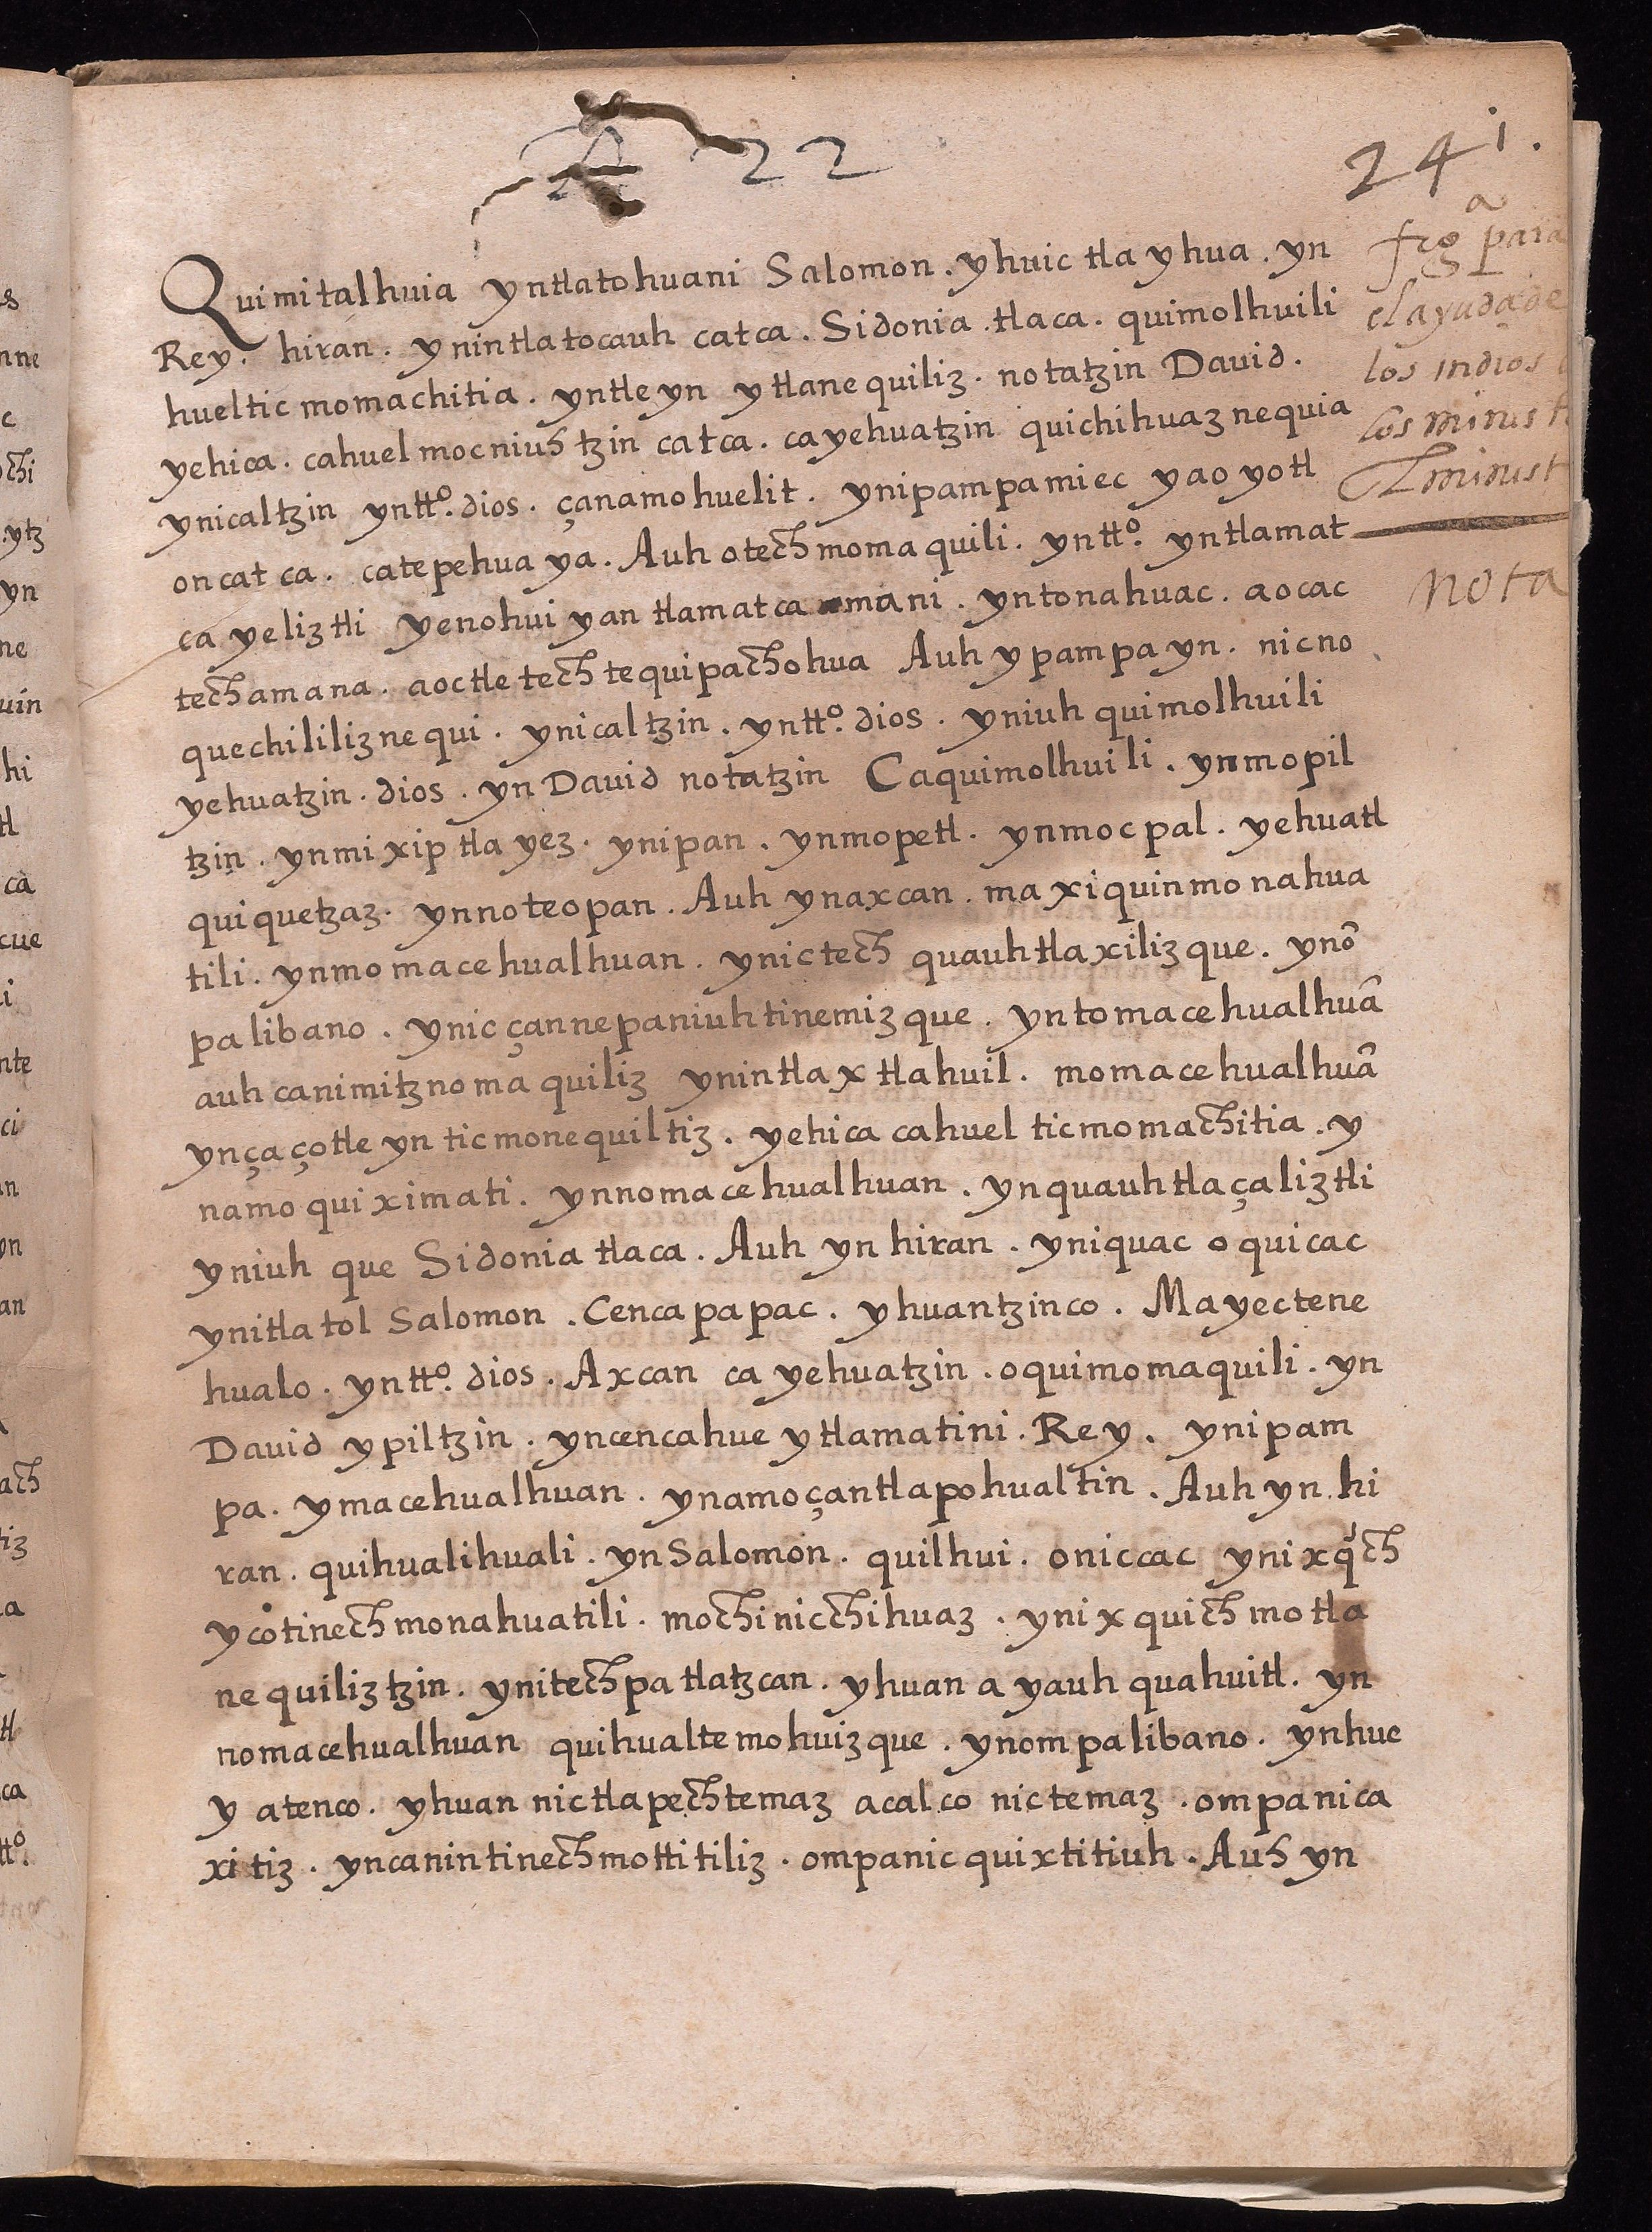 22
241.
Quimitalhuia yntlatohuani Salomon. yhuic tlayhua. yn
Rey. hiran. ynintlatocauh catca. Sidonia tlaca. quimolhuili
hueltic momachitia. yntleyn ytlanequiliz. notatzin David.
yehica. cahuel mocniuhtzin catca. cayehuatzin quichihuaznequia
ynicaltzin yntto. dios. çanamohuelit. ynipampamiec yaoyotl
oncatca. catepehuaya. Auh otechmomaquili. yntto. yntlamat
cayeliztli yenohuiyan tlamatca mani. yntonahuac. aocac
techamana. aoctle techtequipachohua Auh ypampayn. nicno
quechililiznequi. ynicaltzin. yntto. dios. yniuh quimolhuili
yehuatzin. dios. yn David notatzin Caquimolhuili. ynmopil
tzin. ynmixiptla yez. ynipan. ynmopetl. ynmocpal. yehuatl
quiquetzaz. ynnoteopan. Auh ynaxcan. maxiquinmonahua
tili. ynmomacehualhuan. ynictech quauhtlaxilizque. ynō
palibano. ynicçannepaniuhtinemizque. yntomacehualhuā
auh canimitznomaquiliz ynintlaxtlahuil. momacehualhuā
ynçaçotle yn ticmonequiltiz. yehica cahuel ticmomachitia. y
namo quiximati. ynnomacehualhuan. ynquauhtlaçaliztli
yniuh que Sidonia tlaca. Auh yn hiran. yniquac oquicac
ynitlatol Salomon. Cencapapac. yhuantzinco. Mayectene
hualo. yntto. dios. Axcan ca yehuatzin. oquimomaquili. yn
David ypiltzin. yncencahue ytlamatini. Rey. ynipam
pa. ymacehualhuan. ynamoçantlapohualtin. Auh yn hi
ran. quihualihuali. yn Salomon. quilhui. oniccac ynixqch
yc otinechmonahuatili. mochinicchihuaz. ynixquich motla
nequiliztzin. ynitechpa tlatzcan. yhuan ayauhquahuitl. yn
nomacehualhuan quihualtemohuizque. ynompalibano. ynhue
y atenco. yhuan nictlapechtemaz acalco nictemaz. ompanica
xitiz. yncanintinechmottitiliz. ompanicquixtitiuh. Auh yn
para
el ayuda de
los indios
los minist
minist
nota